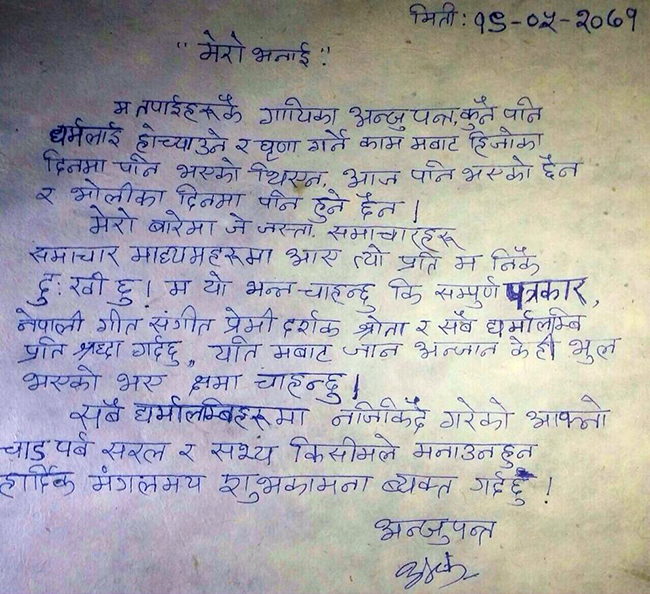 मिती: १९-०५-२०७१
"मेरो भनाई"
म तपाईहरूकै गायिका अन्जु पन्त, कुनै पनि
धर्मलाई होच्याउने र घृणा गर्ने काम मबाट हिजोका
दिनमा पनि भएको थिएन, आज पनि भएको छैन
र भोलीका दिनमा पनि हुने छैन !
मेरो बारेमा जे जस्ता समाचारहरू
समाचार माध्यमहरूमा आए त्यो प्रति म निकै
दु:खी छु ! म यो भन्न चाहन्छु कि सम्पुर्ण पत्रकार,
नेपाली गीत संगीत प्रेमी दर्शक श्रोता र सबै धर्मालम्बि
प्रति श्रध्दा गर्दछु, यति मबाट जान अन्जान केही भुल
भएको भए क्षमा चाहन्छु !
सबै धर्मालम्बिहरूमा नजिकिदै गरेको आफ्नो
चाड पर्व सरल र सभ्य किसीमले मनाउन हुन
हार्दिक मंगलमय शुभकामना ब्यक्त गर्दछु !
अन्जु पन्त